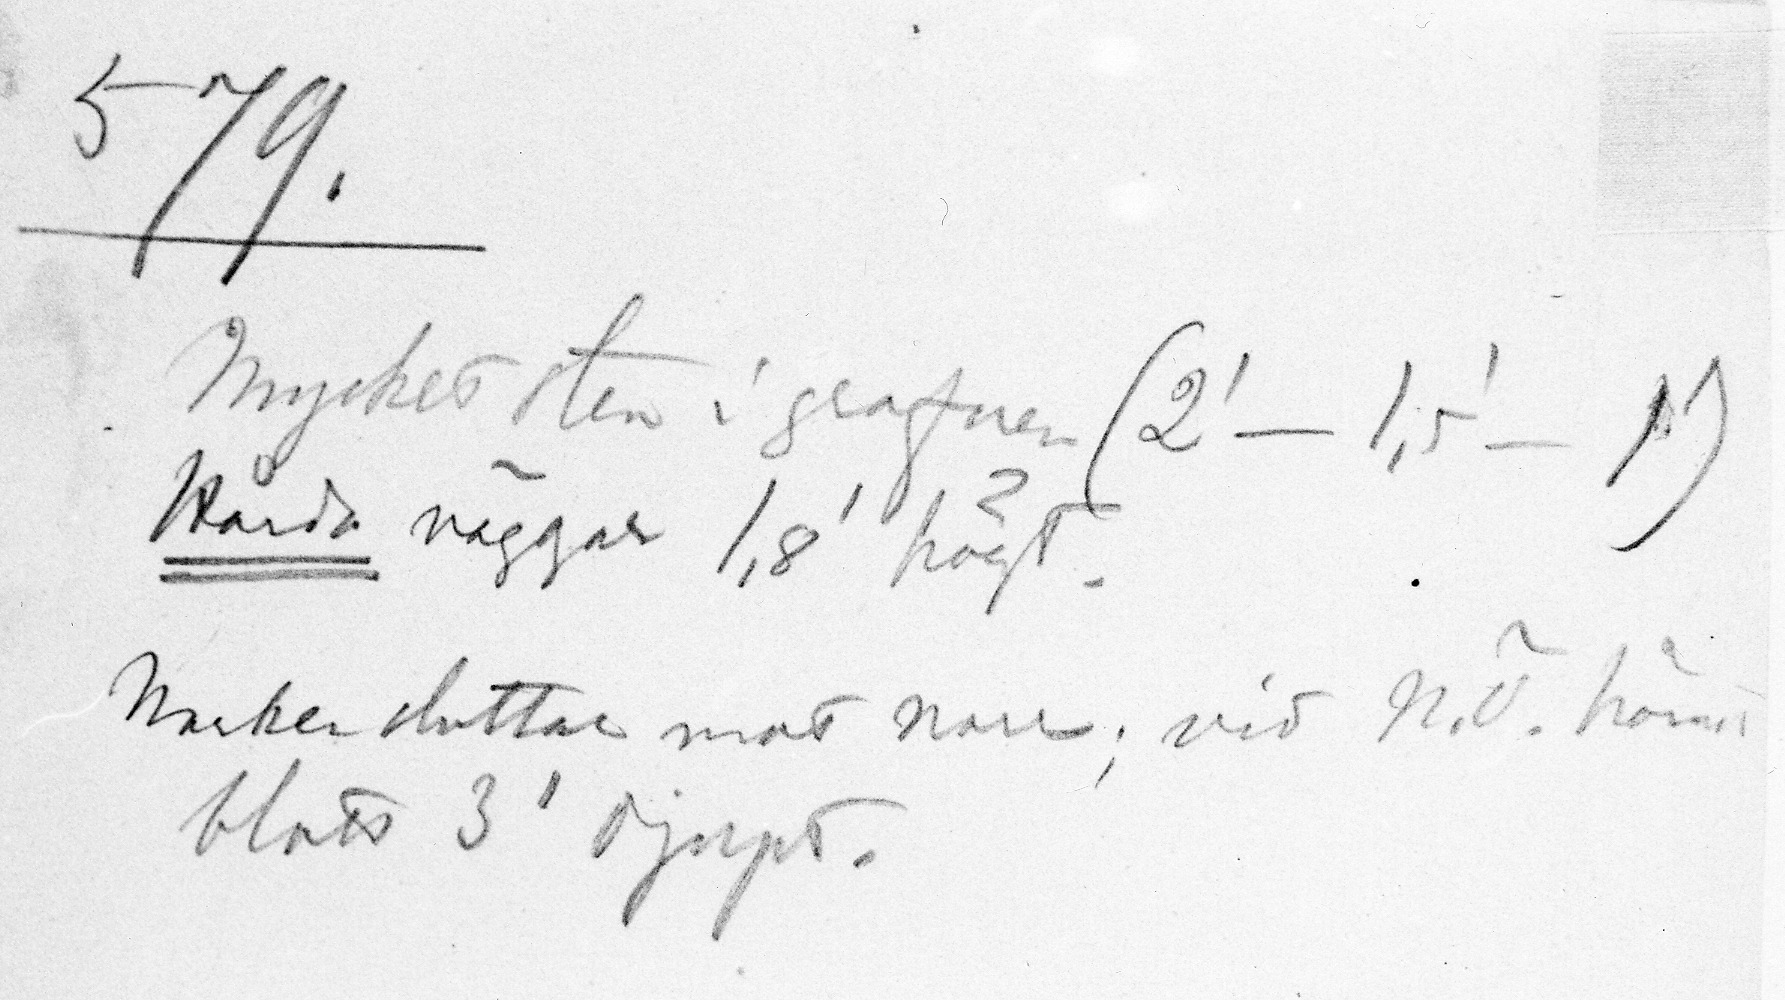 579.
Mycket sten i grafven (2' — 1,5' — 1')
Hårda väggar 1,8' högt.
Marken sluttar mot norr; vid N.Ö. hörnet
blott 3' djupt.